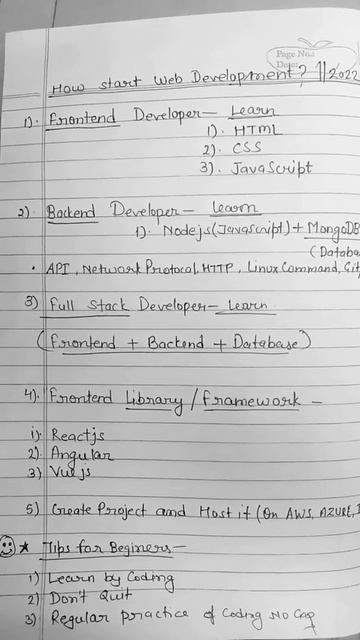 Page No.:
Date:
How start Web Development? 2022
1). Frontend Developer — Learn
1). HTML
2). CSS
3). JavaScript
2) Backend Developer — Learn
1). Nodejs(Javascript) + MongoDB
(Databa
• API, Network Protocol, HTTP, Linux Command, Git
3) Full Stack Developer — Learn
(Frontend + Backend + Database)
4). Frontend Library / framework —
1). Reactjs
2). Angular
3) Vuejs
5) Create Project and Host it (On AWS, AZURE,
★ Tips for Beginers —
1) Learn by Coding
2) Don't Quit
3) Regular practice of Coding No Cap